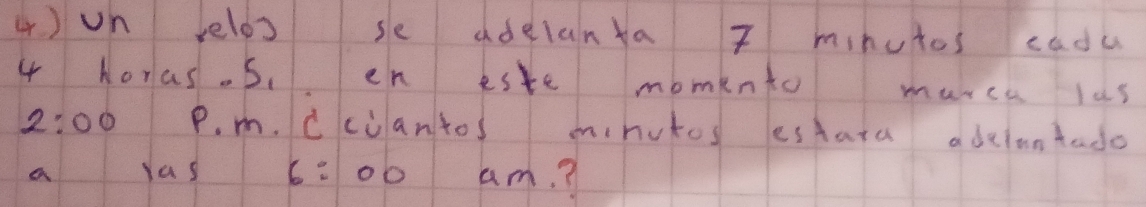 4) Un reloj se adelanta 7 minutos cada
4 horas. Si en este momento marca las
2:00 P.m. ¿ cúantos minutos estara adelantado
a las 6:00 am.?